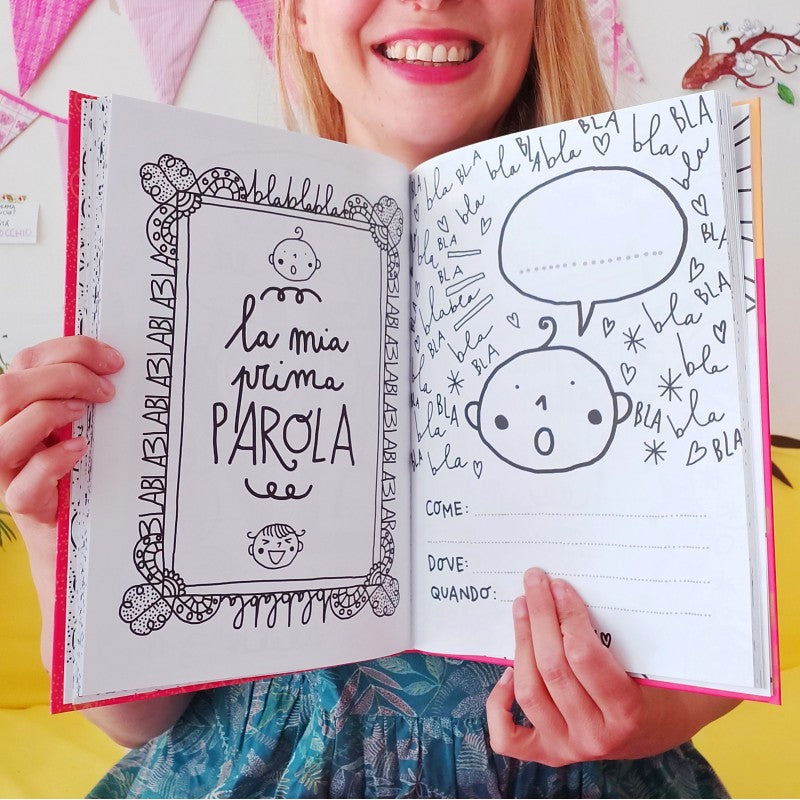 blablabla
la mia
prima
PAROLA
blablabla
BLA
bla
BLA
bla
BLA
bla
BLA
bla
BLA
bla
BLA
bla
BLA
blabla
bla
BLA
bla
BLA
bla
BLA
bla
BLA
bla
bla
COME:
DOVE:
QUANDO: